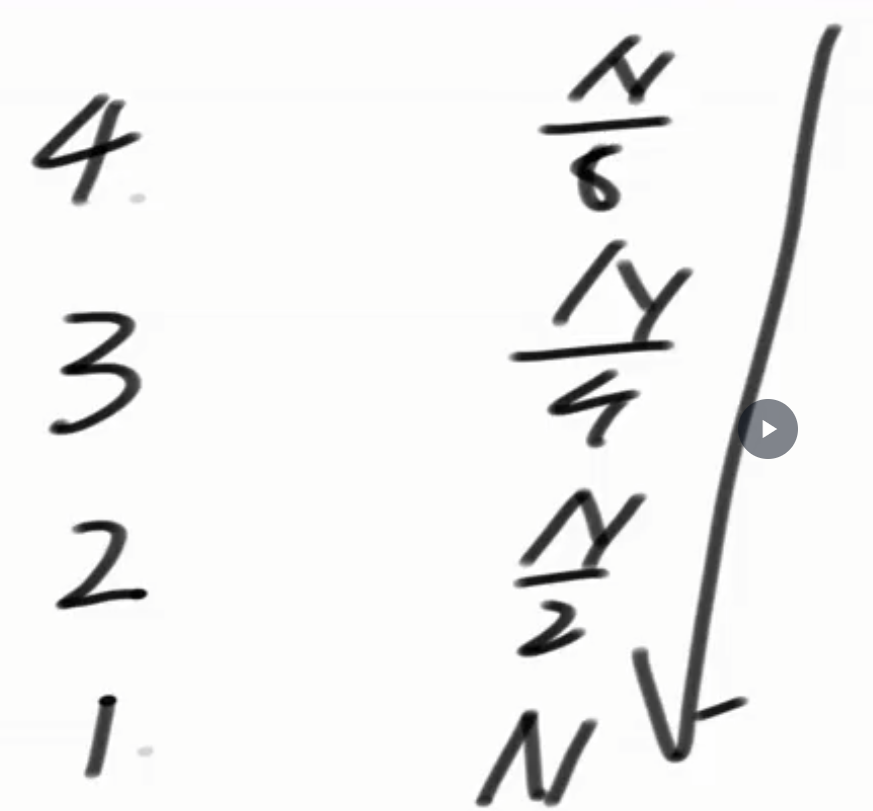 4 N/8
3 N/4
2 N/2
1 N